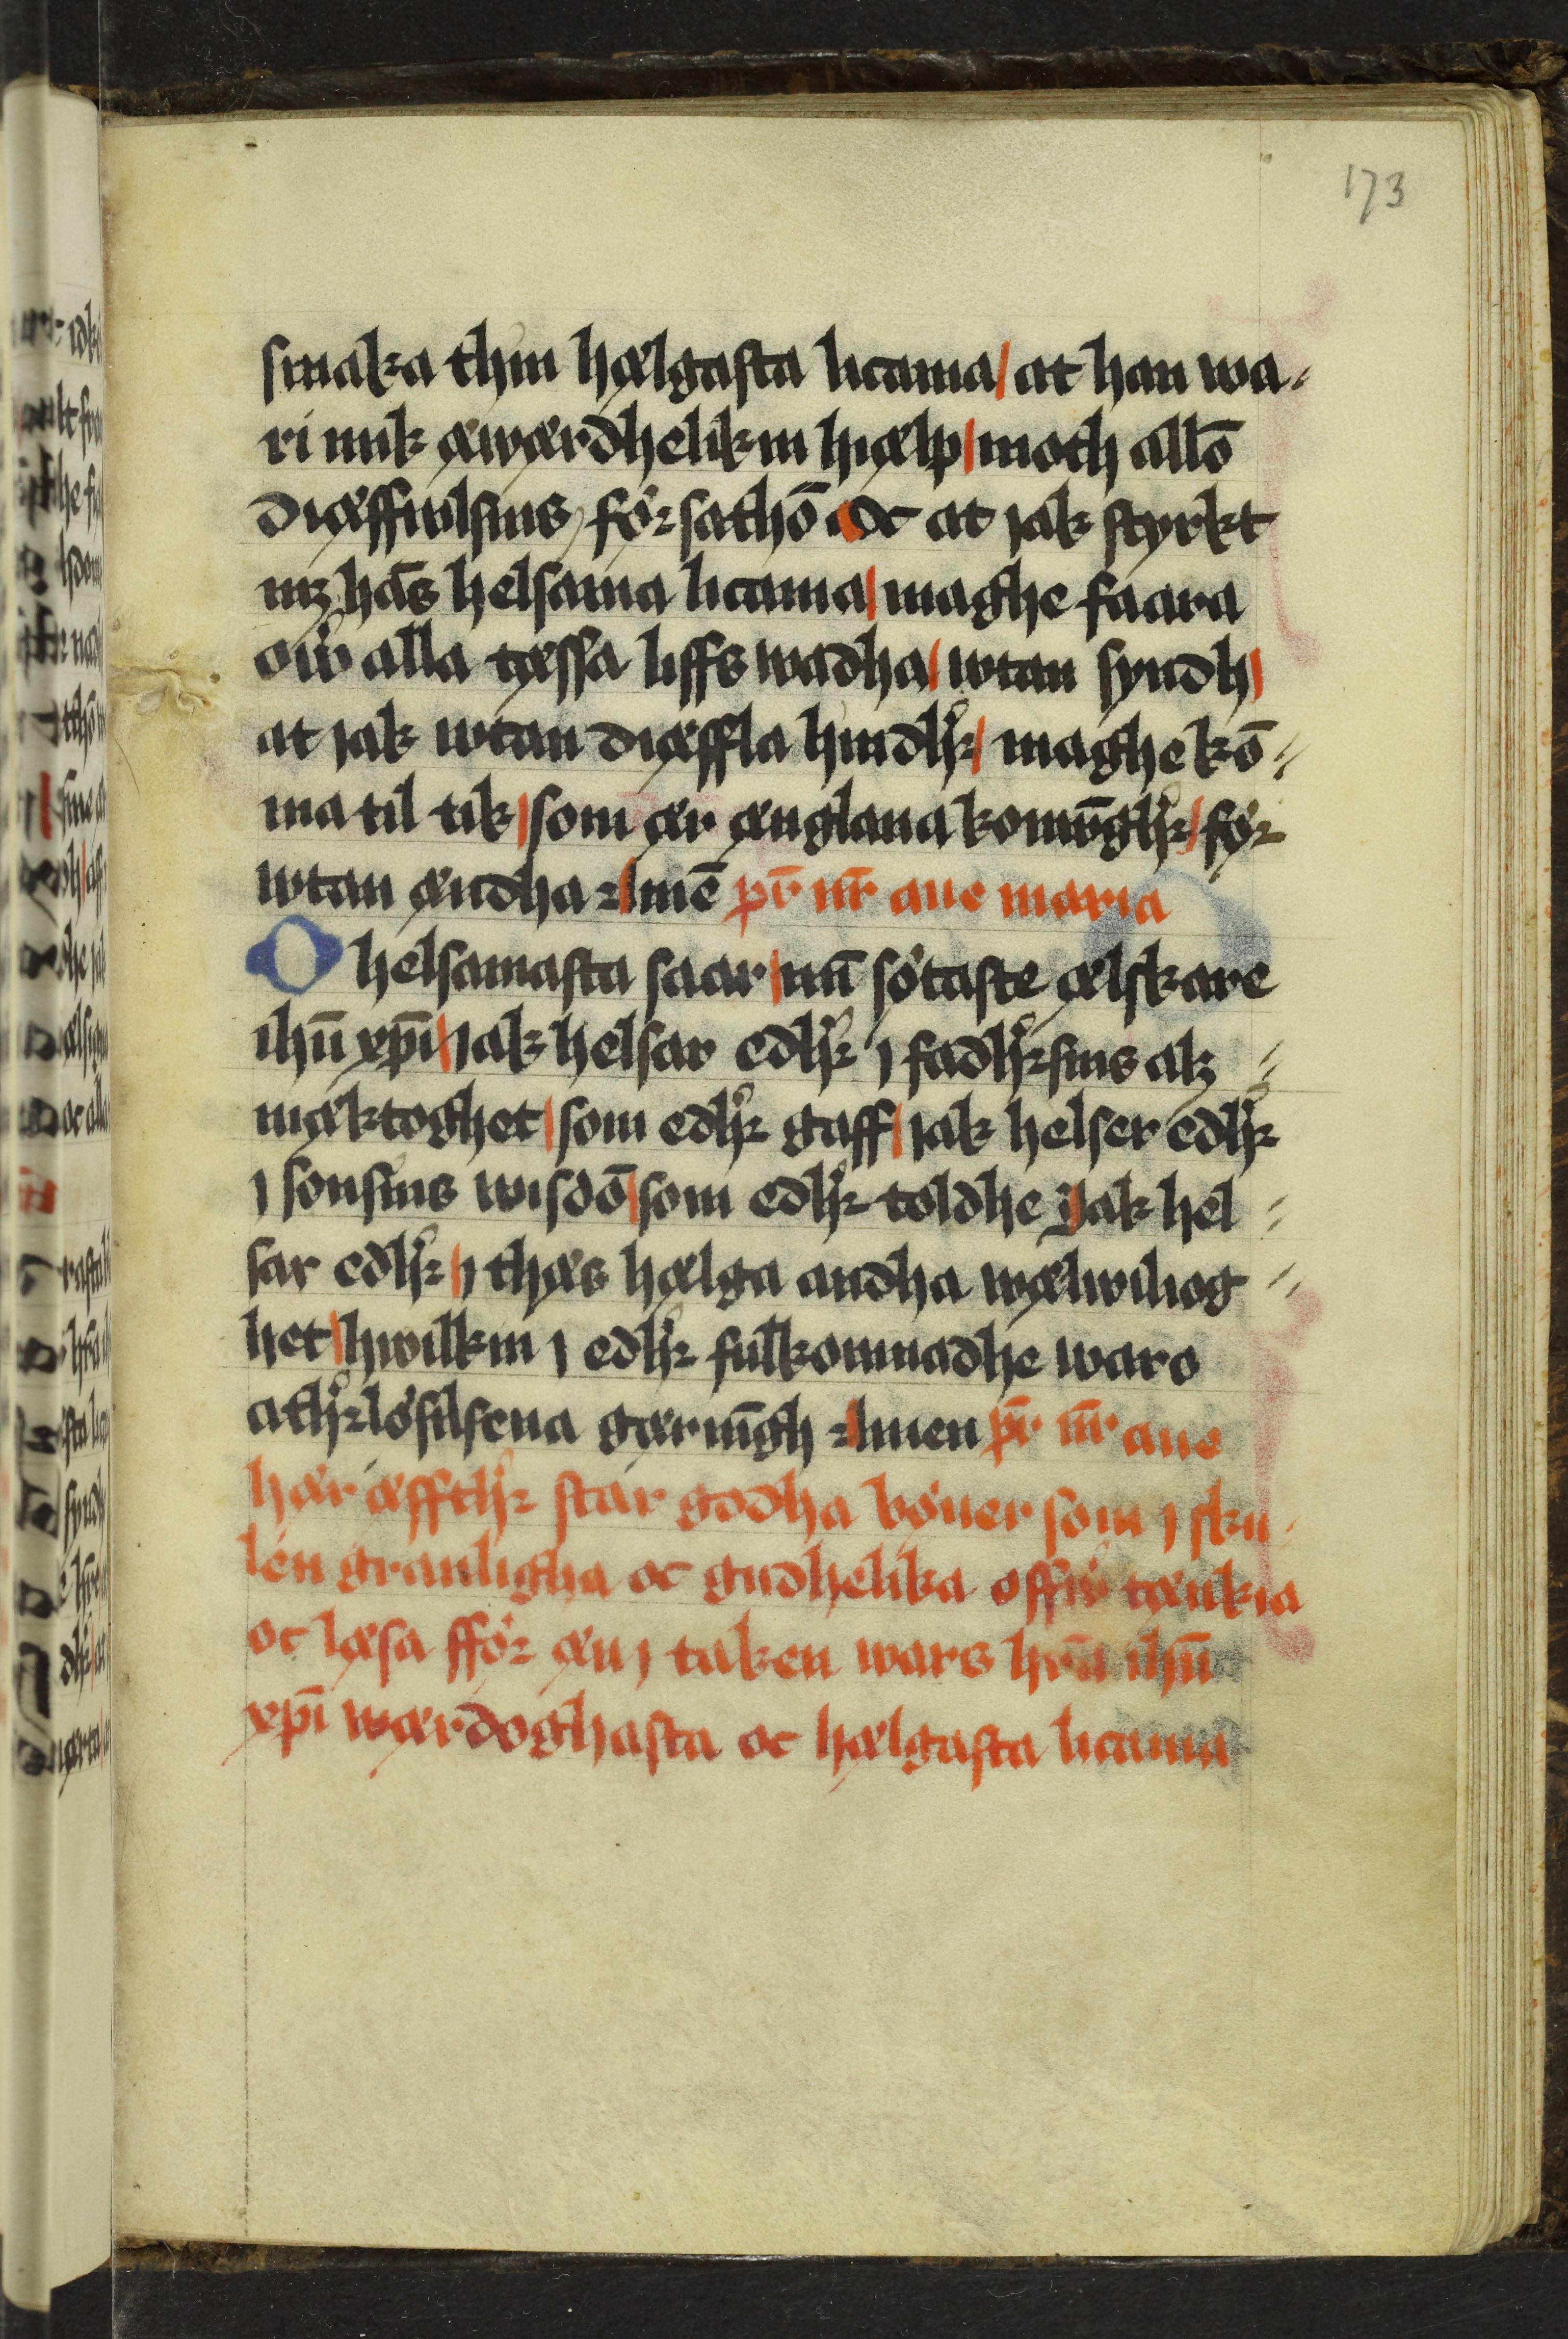 173
smaka thin hælgasta licama/ at han wa-
ri mik æwærdhelikin hiælp/ moth allō
diæffwlsins försathō / Oc at jak styrkt
mz hās helsama licama/ maghe faara
owͬ alla tæssa liffs wadha/ wtan syndh/
at jak wtan diæffla hindhͬ/ maghe kō-
ma til tik/ som ær ænglana konūghͬ/ for
wtan ændha Amē pr̄ nr̄ aue maria
O helsamasta saar/ mī sötaste ælskare
ihū xp̄i/ jak helsar edhͬ j fadhͬsins alz
mæktoghet/ som edhͬ gaff/ jak helser edhͬ
j sonsins wisdō/ som edhͬ toldhe Jak hel-
sar edhͬ/ j thæs hælga andha wælwiliog-
het/ hwilkin j edhͬ fulkomnadhe waro
athͬlösilsena gærnīgh Amen pr̄ nr̄ aue
hær æffthͬ star godha böner som j sku-
len granligha oc gudhelika offwͬ tænkia
oc læsa fför æn j taken wars hr̄a ihū
xp̄i wærdoghasta oc hælgasta licama